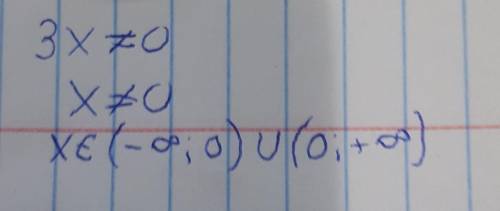 3x≠0
x≠0
x∈(-∞;0)∪(0;+∞)